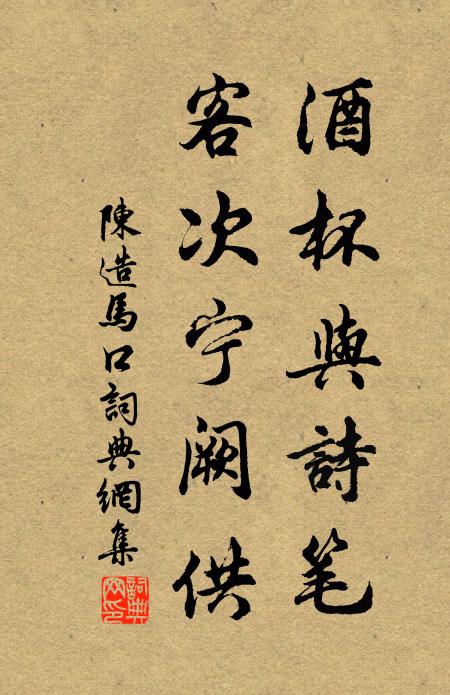 酒杯與詩笔
客次宁阙供
陳造馬口詞典網集
詞典
网印